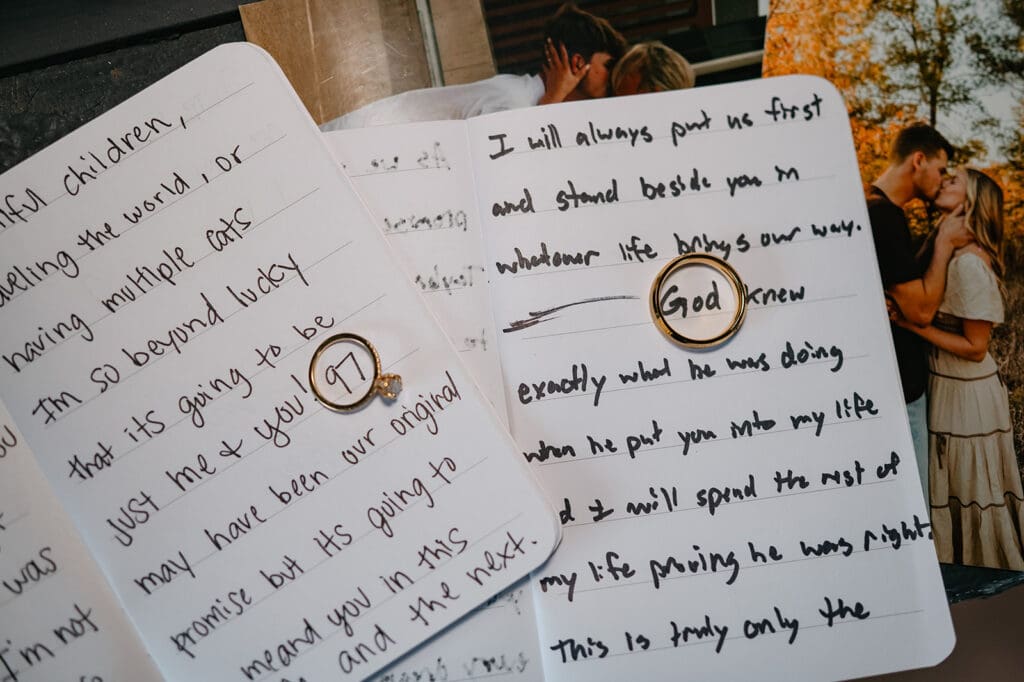 children,
the world, or
having multiple cats
I'm so beyond lucky
that its going to be
just me & you! 97
may have been our original
promise but its going to
meand you in this
and the next.
was
I'm not
I will always put us first
and stand beside you in
whatever life brings our way.
God knew
exactly what he was doing
when he put you into my life
I will spend the rest of
my life proving he was right.
This is truly only the